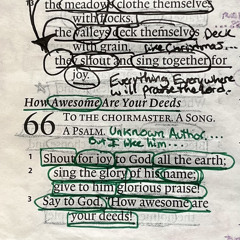 the meadows clothe themselves
with flocks,
the valleys deck themselves Deck
with grain, like Christmas...
they shout and sing together for
joy. Everything Everywhere
will praise the Lord.
How Awesome Are Your Deeds
66 TO THE CHOIRMASTER. A SONG.
A PSALM. Unknown Author....
But I like him...
1 Shout for joy to God, all the earth;
2 sing the glory of his name;
give to him glorious praise!
3 Say to God, "How awesome are
your deeds!